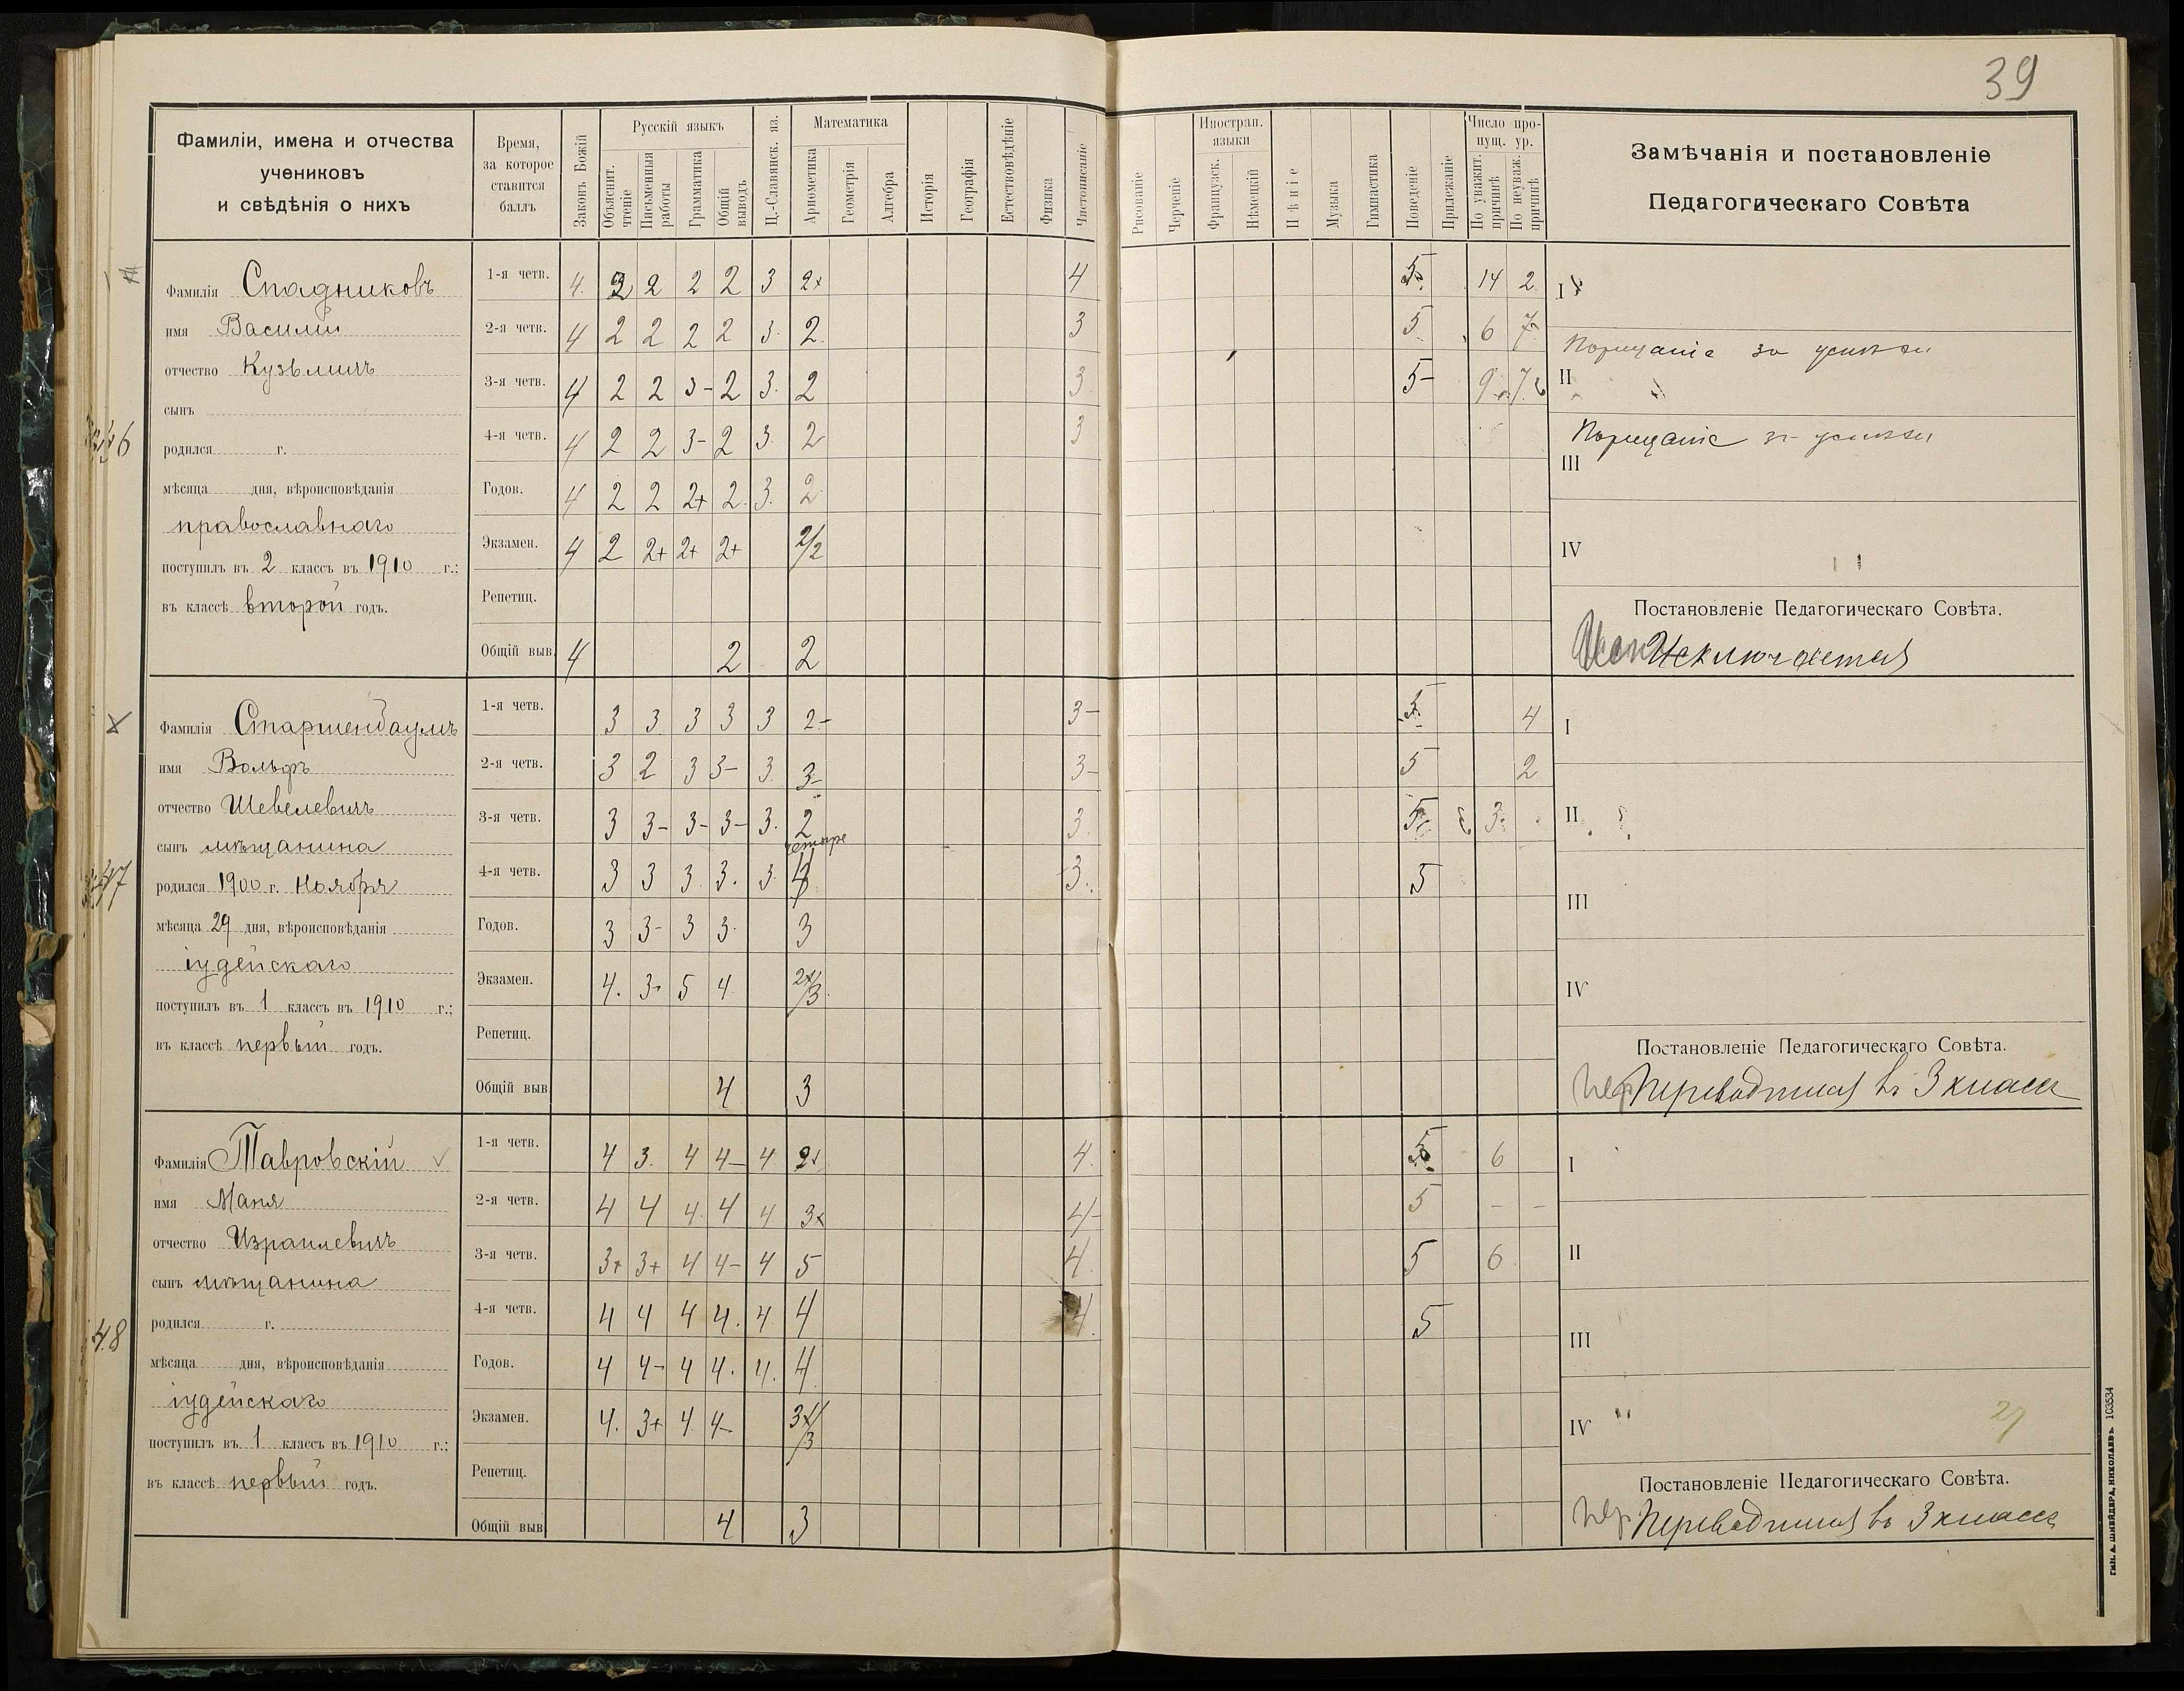 39
Фамиліи, имена и отчества
учениковъ
и свѣдѣнія о нихъ
Время,
за которое
ставится
баллъ
Законъ Божій
Русскій языкъ
Объяснит. чтеніе
Письменныя работы
Грамматика
Общій выводъ
Ц.-Славянск. яз.
Математика
Ариѳметика
Геометрія
Алгебра
Исторія
Географія
Естествовѣдѣніе
Физика
Чистописаніе
Рисованіе
Черченіе
Иностран. языки
Французск.
Нѣмецкій
Пѣніе
Музыка
Гимнастика
Поведеніе
Прилежаніе
Число пропущ. ур.
По уважит. причинѣ
По неуваж. причинѣ
Замѣчанія и постановленіе
Педагогическаго Совѣта
46
Фамилія Спадниковъ
имя Василій
отчество Кузьмичъ
сынъ
родился г.
мѣсяца дня, вѣроисповѣданія
православнаго
поступилъ въ 2 классъ въ 1910 г.;
въ классѣ второй годъ.
1-я четв. 4. 2 2 2 2 3 2+ 4 5 14 2
2-я четв. 4 2 2 2 2 3. 2. 3 5 6 7
3-я четв. 4 2 2 3- 2 3. 2 3 5- 9 7
4-я четв. 4 2 2 3- 2 3. 2 3
Годов. 4 2 2 2+ 2. 3. 2
Экзамен. 4 2 2+ 2+ 2+ 2/2
Репетиц.
Общій выв. 4 2 2
I
Порицаніе за успѣхи
II
Порицаніе за успѣхи
III
IV
Постановленіе Педагогическаго Совѣта.
Исключается
47
Фамилія Старшендаумъ
имя Вольфъ
отчество Шевелевичъ
сынъ мѣщанина
родился 1900 г. Ноября
мѣсяца 29 дня, вѣроисповѣданія
іудейскаго
поступилъ въ 1 классъ въ 1910 г.;
въ классѣ первый годъ.
1-я четв. 3 3. 3 3 3 2- 3- 5 4
2-я четв. 3 2 3 3- 3. 3- 3- 5 2
3-я четв. 3 3- 3- 3- 3. 2 3. 5 3
четыре
4-я четв. 3 3 3. 3. 3. 4 3. 5
Годов. 3 3- 3 3. 3
Экзамен. 4. 3- 5 4 2+/3
Репетиц.
Общій выв 4 3
I
II
III
IV
Постановленіе Педагогическаго Совѣта.
Пер Переводится въ 3 классъ
48
Фамилія Тавровскій
имя Маня
отчество Израилевичъ
сынъ мѣщанина
родился г.
мѣсяца дня, вѣроисповѣданія
іудейскаго
поступилъ въ 1 классъ въ 1910 г.;
въ классѣ первый годъ.
1-я четв. 4 3. 4 4- 4 2+ 4. 5 6
2-я четв. 4 4 4. 4 4 3+ 4- 5 - -
3-я четв. 3+ 3+ 4 4- 4 5 4. 5 6
4-я четв. 4 4 4 4. 4. 4 4. 5
Годов. 4 4- 4 4. 4. 4
Экзамен. 4. 3+ 4. 4- 3+/3
Репетиц.
Общій выв 4 3
I
II
III
IV
27
Постановленіе Педагогическаго Совѣта.
Пер Переводится въ 3 классъ
ТИП. А. ШНЕЙДЕРА, НИКОЛАЕВЪ 103534